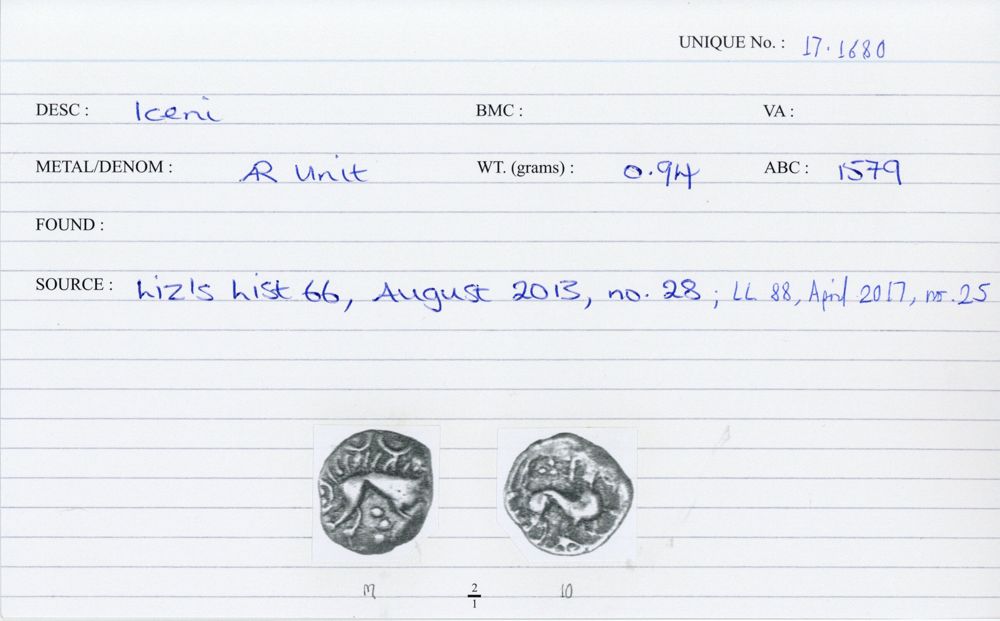 UNIQUE No. : 17.1680
DESC : Iceni BMC : VA :
METAL/DENOM : AR Unit WT. (grams) : 0.94 ABC : 1579
FOUND :
SOURCE : Liz's List 66, August 2013, no. 28 ; LL 88, April 2017, no. 25
M 2/1 10